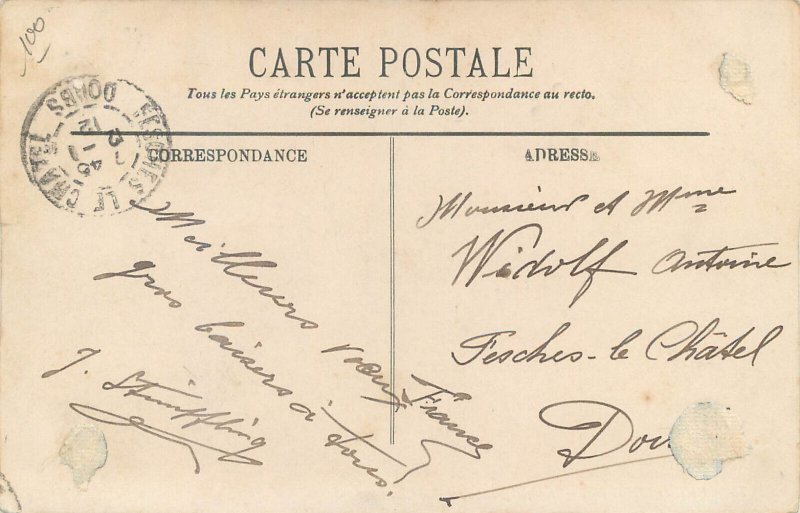 100
CARTE POSTALE
Tous les Pays étrangers n'acceptent pas la Correspondance au recto.
(Se renseigner à la Poste).
FESCHES LE CHATEL
DOUBS
CORRESPONDANCE
Meilleurs vœux
gros baisers à tous.
J.
ADRESSE
Monsieur et Mme
Widolf Antoine
Fesches-le Châtel
France